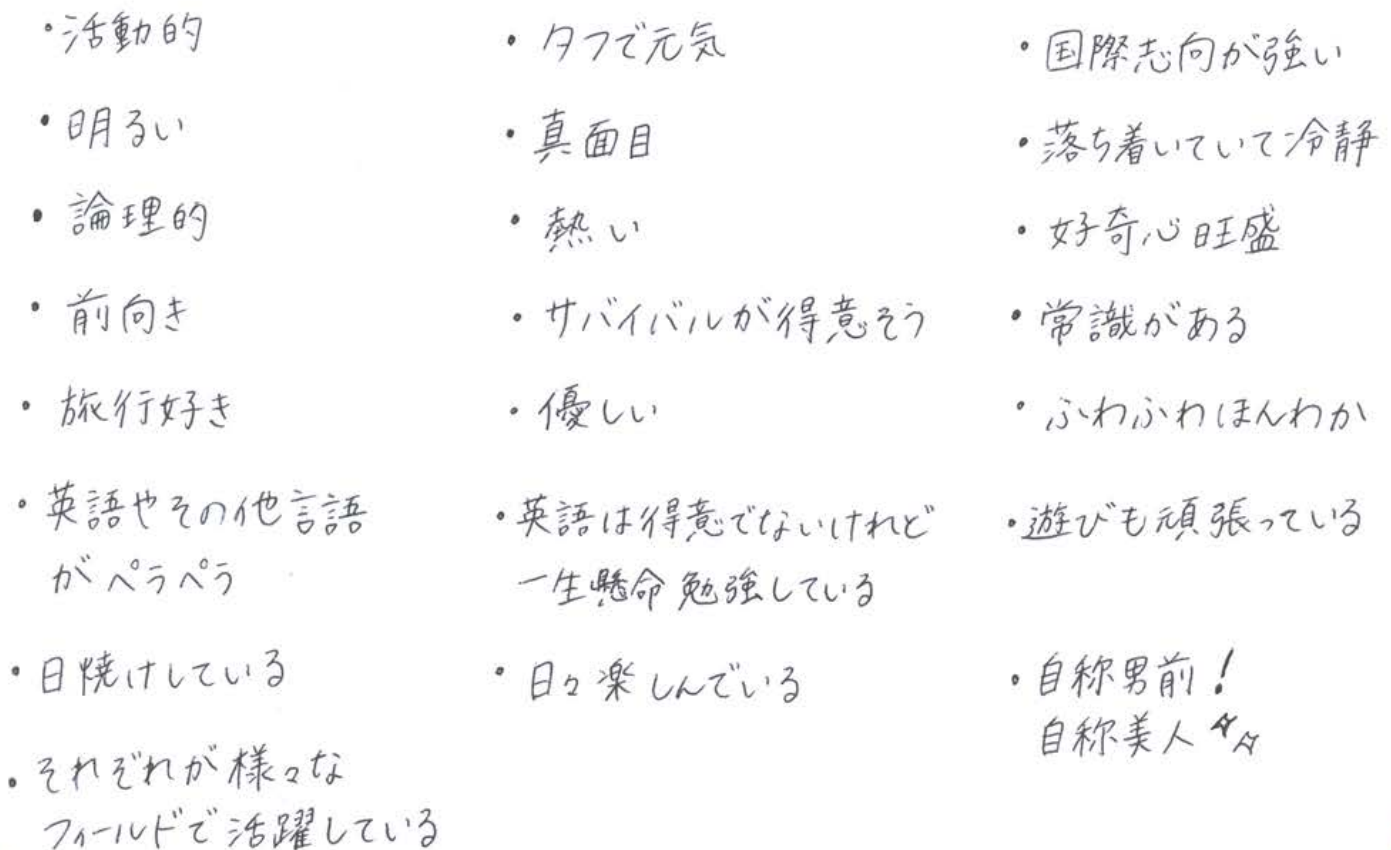 ・活動的
・明るい
・論理的
・前向き
・旅行好き
・英語やその他言語
がペラペラ
・日焼けしている
・それぞれが様々な
フィールドで活躍している
・タフで元気
・真面目
・熱い
・サバイバルが得意そう
・優しい
・英語は得意でないけれど
一生懸命勉強している
・日々楽しんでいる
・国際志向が強い
・落ち着いていて冷静
・好奇心旺盛
・常識がある
・ふわふわほんわか
・遊びも頑張っている
・自称男前!
自称美人☆☆